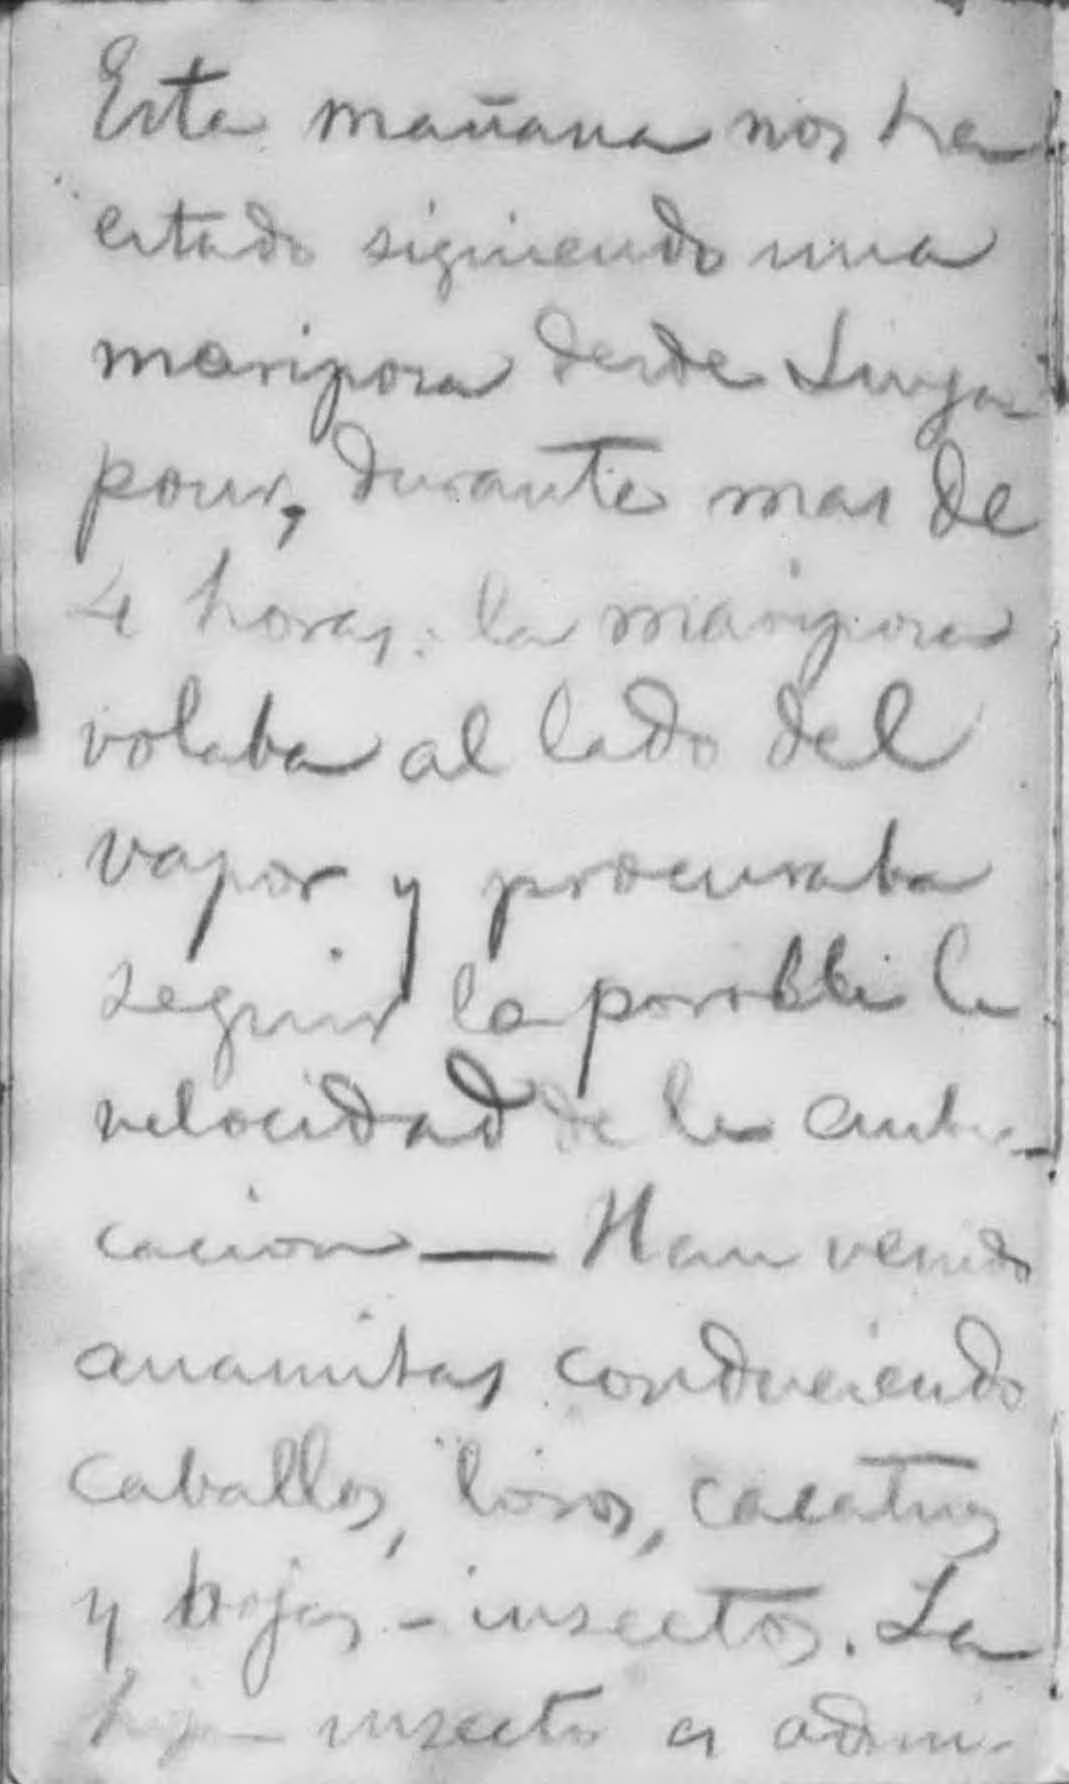 Esta mañana nos ha
estado siguiendo una
mariposa desde Singa-
pour, durante mas de
4 horas: la mariposa
volaba al lado del
vapor y procuraba
seguir la posible la
velocidad de la
cacion — Han venido
anamitas conduciendo
caballos, loros, cacatuas
y hojas-insectos. La
hoja-insecto es admi-